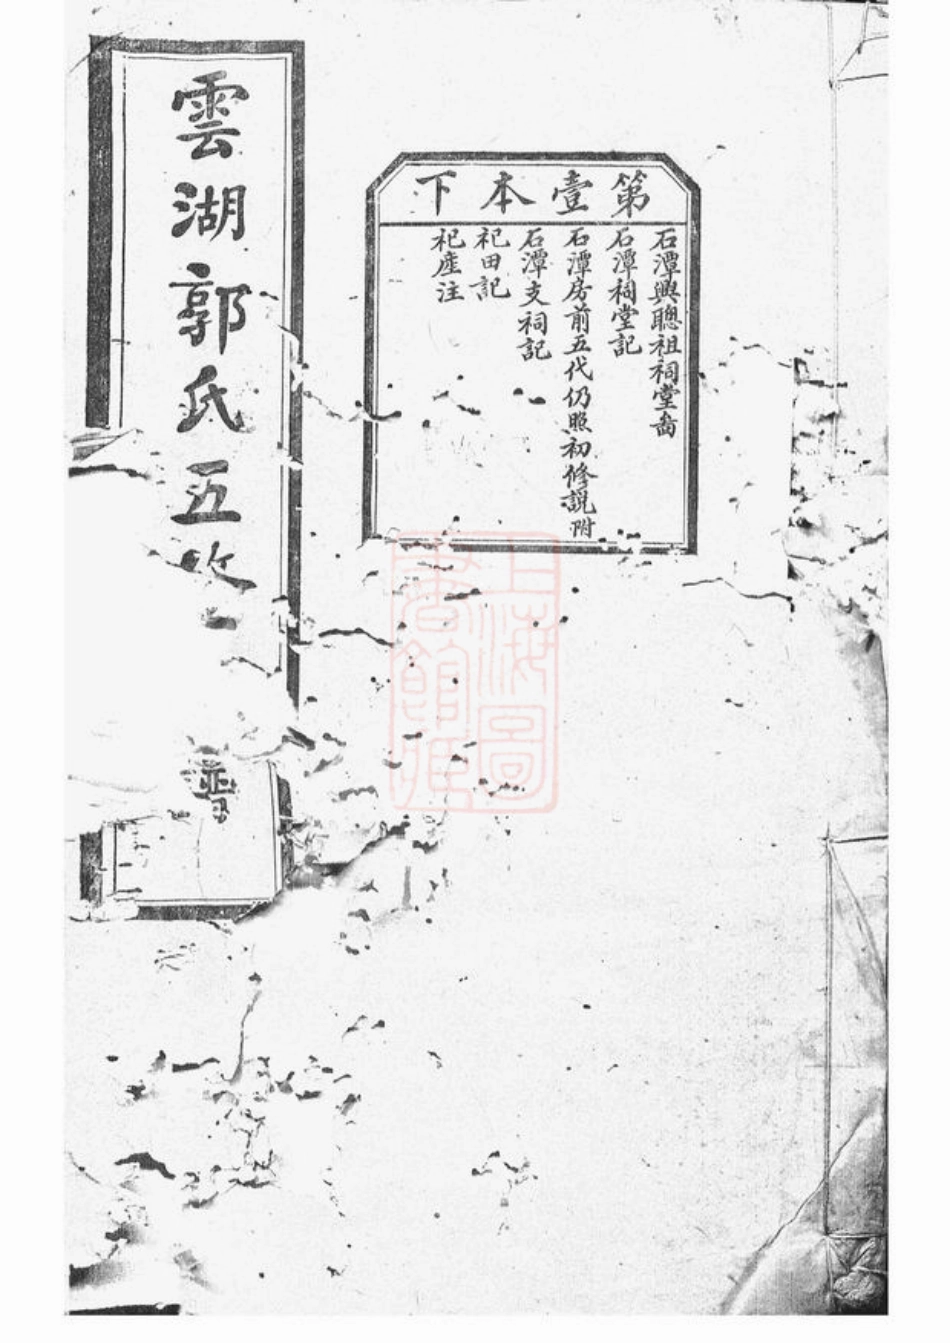 第壹本下
石潭興聰祖祠堂啚
石潭祠堂記
石潭房前五代仍照初修説附
石潭支祠記
祀田記
祀產注
雲湖郭氏五
譜
上海圖書館藏